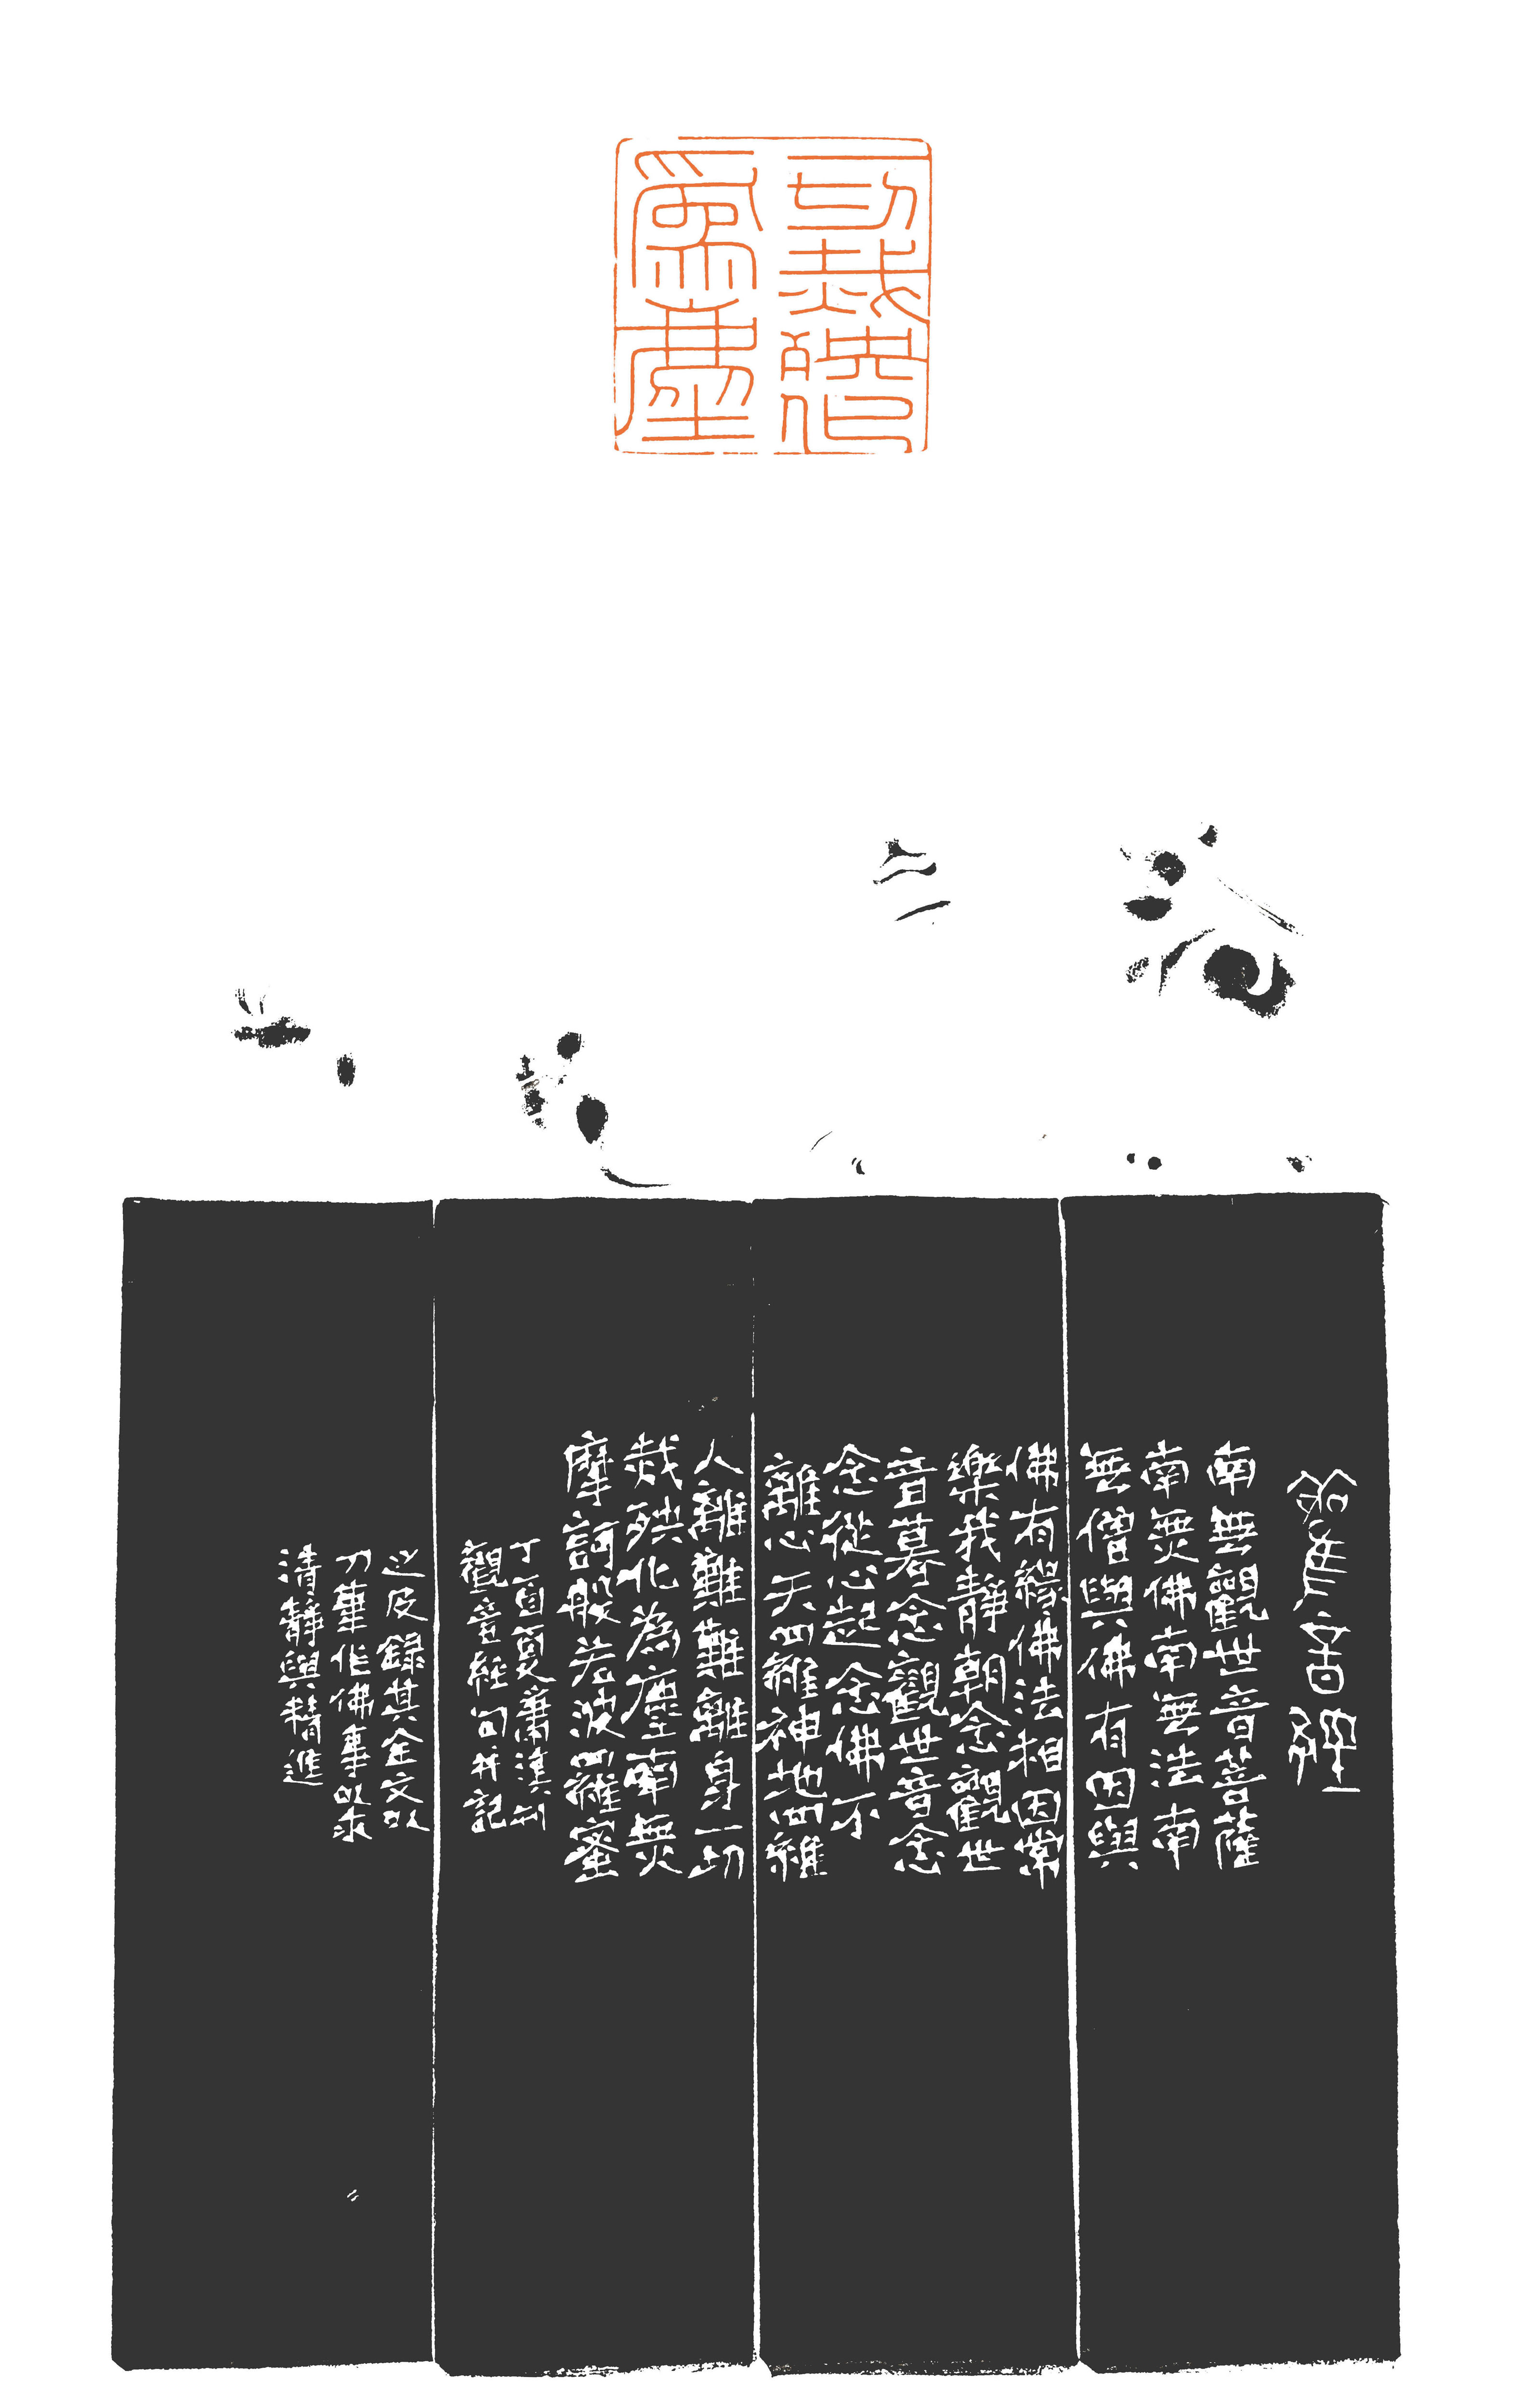 一切烖殃化
為塵
音經
南無觀世音菩薩
南無佛南無法南
無僧與佛有因與
佛有緣佛法相因常
樂我靜朝念觀世
音暮念觀世音念
念從心起念佛不
離心天羅神地羅
人離難難離身一切
烖殃化為塵南無
摩訶般若波羅蜜
丁酉夏肅漢刊
觀音經句并記
之及錄其全文以
刀筆作佛事以求
清靜與精進